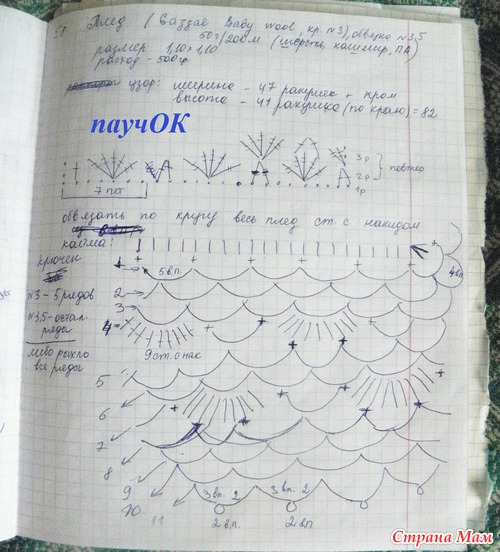 58 Плед (Gazzal Baby wool, кр. №3), обвязка №3,5
50г/200м (шерсть, кашмир, ПА)
размер 1,10 x 1,10
расход - 500гр.
узор: ширина - 47 ракушек + кром
высота - 41 ракушка (по краю) = 82
паучОК
3р
2р
1р
повтор
7 пет
обвязать по кругу весь плед ст. с накидом
кайма:
крючек
№3 - 5 рядов
№3,5 - остал.
ряды
либо рыхло
все ряды
1
5 вп.
4вп
2
3
4
9 ст. с нак
5
6
7
8
9
3 вп. 2
3 вп. 2
10
11
2 вп.
2 вп
Страна Мам